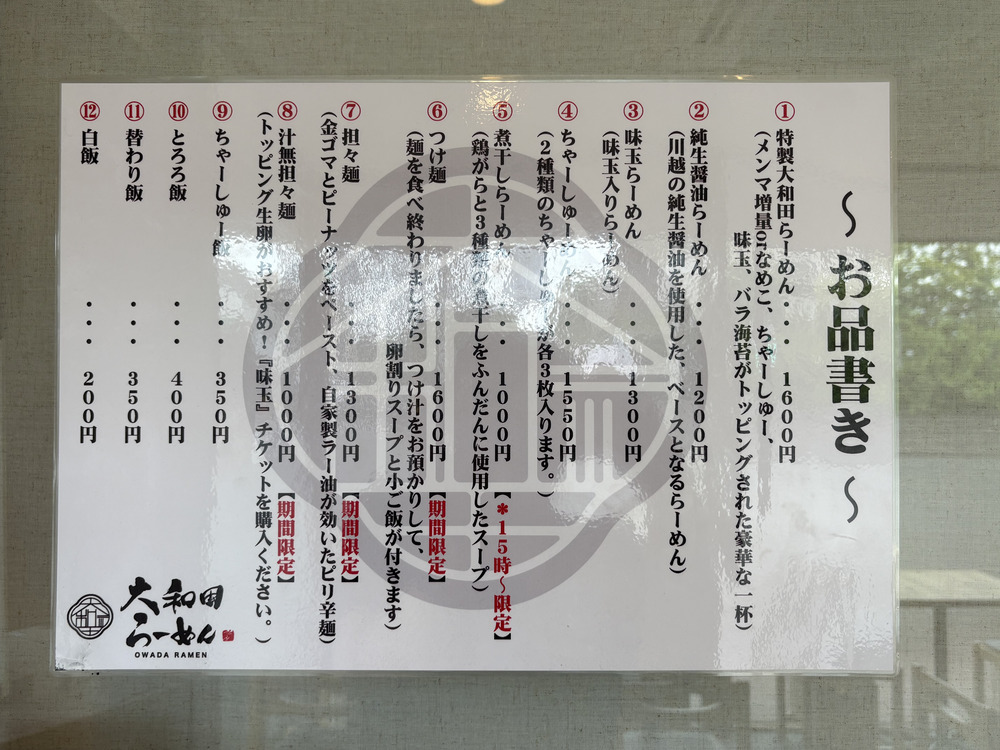 ～お品書き～
① 特製大和田らーめん・・・1600円
(メンマ増量orなめこ、ちゃーしゅー、
味玉、バラ海苔がトッピングされた豪華な一杯)
② 純生醤油らーめん・・・1200円
(川越の純生醤油を使用した、ベースとなるらーめん)
③ 味玉らーめん・・・1300円
(味玉入りらーめん)
④ ちゃーしゅーめん・・・1550円
(2種類のちゃーしゅーが各3枚入ります。)
⑤ 煮干しらーめん・・・1000円【＊15時～限定】
(鶏がらと3種類の煮干しをふんだんに使用したスープ)
⑥ つけ麺・・・1600円【期間限定】
(麺を食べ終わりましたら、つけ汁をお預かりして、
卵割りスープと小ご飯が付きます)
⑦ 担々麺・・・1300円【期間限定】
(金ゴマとピーナッツをペースト、自家製ラー油が効いたピリ辛麺)
⑧ 汁無担々麺・・・1000円【期間限定】
(トッピング生卵がおすすめ！『味玉』チケットを購入ください。)
⑨ ちゃーしゅー飯・・・350円
⑩ とろろ飯・・・400円
⑪ 替わり飯・・・350円
⑫ 白飯・・・200円
大和田
らーめん
OWADA RAMEN